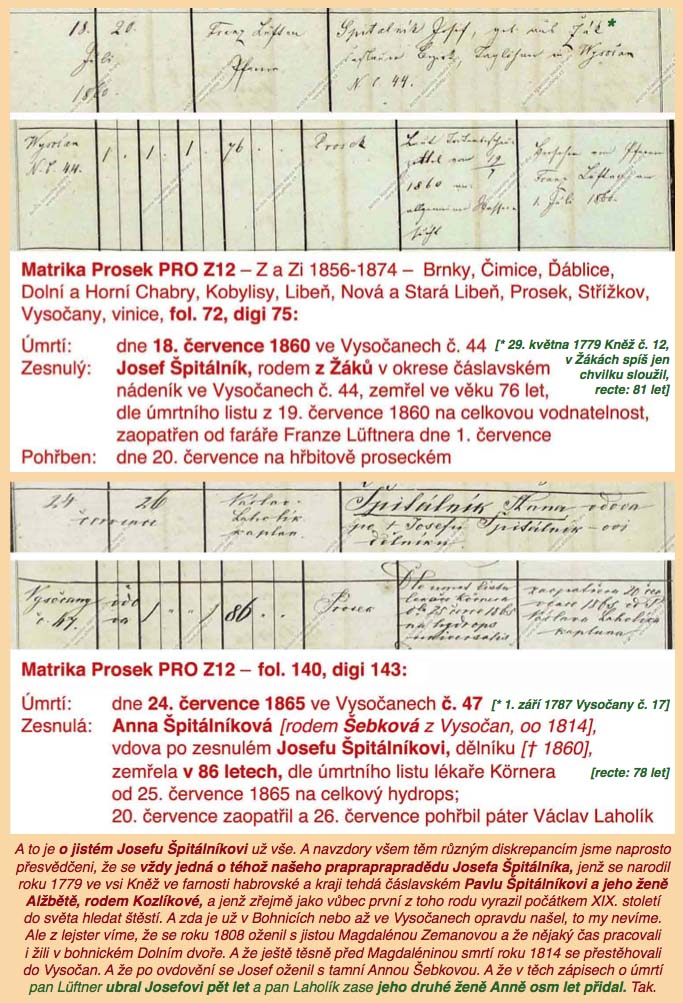 18. 20. Franz Lüftner Spitalnik Josef, geb. aus Žák *
Juli Pfarrer Taglöhner in Wysočan
1860 N. C. 44.
Wysočan 1. 1. 1. 76 Prosek
N. C. 44. zettel vom 19/7
1860 an Franz Lüftner am
allgemeiner Wasser 1. Juli 1860.
sucht
Matrika Prosek PRO Z12 – Z a Zi 1856-1874 – Brnky, Čimice, Ďáblice,
Dolní a Horní Chabry, Kobylisy, Libeň, Nová a Stará Libeň, Prosek, Střížkov,
Vysočany, vinice, fol. 72, digi 75:
Úmrtí: dne 18. července 1860 ve Vysočanech č. 44 [* 29. května 1779 Kněž č. 12,
v Žákách spíš jen
Zesnulý: Josef Špitálník, rodem z Žáků v okrese čáslavském
chvilku sloužil,
nádeník ve Vysočanech č. 44, zemřel ve věku 76 let,
recte: 81 let]
dle úmrtního listu z 19. července 1860 na celkovou vodnatelnost,
zaopatřen od faráře Franze Lüftnera dne 1. července
Pohřben: dne 20. července na hřbitově proseckém
24 26 Václav Špitálník Anna vdova
července Laholík po † Josefu Špitálník-ovi
kaplan. dělníku
Vysočany vdo 1 „ „ 86 Prosek Dle úmrt. listu zaopatřena 20 čer
č. 47. va lékaře Körnera vence 1865 od P.
25 července 1865 Václava Laholíka
na hydrops kaplana
universalis
Matrika Prosek PRO Z12 – fol. 140, digi 143:
Úmrtí: dne 24. července 1865 ve Vysočanech č. 47 [* 1. září 1787 Vysočany č. 17]
Zesnulá: Anna Špitálníková [rodem Šebková z Vysočan, oo 1814],
vdova po zesnulém Josefu Špitálníkovi, dělníku [† 1860],
zemřela v 86 letech, dle úmrtního listu lékaře Körnera [recte: 78 let]
od 25. července 1865 na celkový hydrops;
20. července zaopatřil a 26. července pohřbil páter Václav Laholík
A to je o jistém Josefu Špitálníkovi už vše. A navzdory všem těm různým diskrepancím jsme naprosto
přesvědčeni, že se vždy jedná o téhož našeho prapraprapradědu Josefa Špitálníka, jenž se narodil
roku 1779 ve vsi Kněž ve farnosti habrovské a kraji tehdá čáslavském Pavlu Špitálníkovi a jeho ženě
Alžbětě, rodem Kozlíkové, a jenž zřejmě jako vůbec první z toho rodu vyrazil počátkem XIX. století
do světa hledat štěstí. A zda je už v Bohnicích nebo až ve Vysočanech opravdu našel, to my nevíme.
Ale z lejster víme, že se roku 1808 oženil s jistou Magdalénou Zemanovou a že nějaký čas pracovali
i žili v bohnickém Dolním dvoře. A že ještě těsně před Magdaléninou smrtí roku 1814 se přestěhovali
do Vysočan. A že po ovdovění se Josef oženil s tamní Annou Šebkovou. A že v těch zápisech o úmrtí
pan Lüftner ubral Josefovi pět let a pan Laholík zase jeho druhé ženě Anně osm let přidal. Tak.